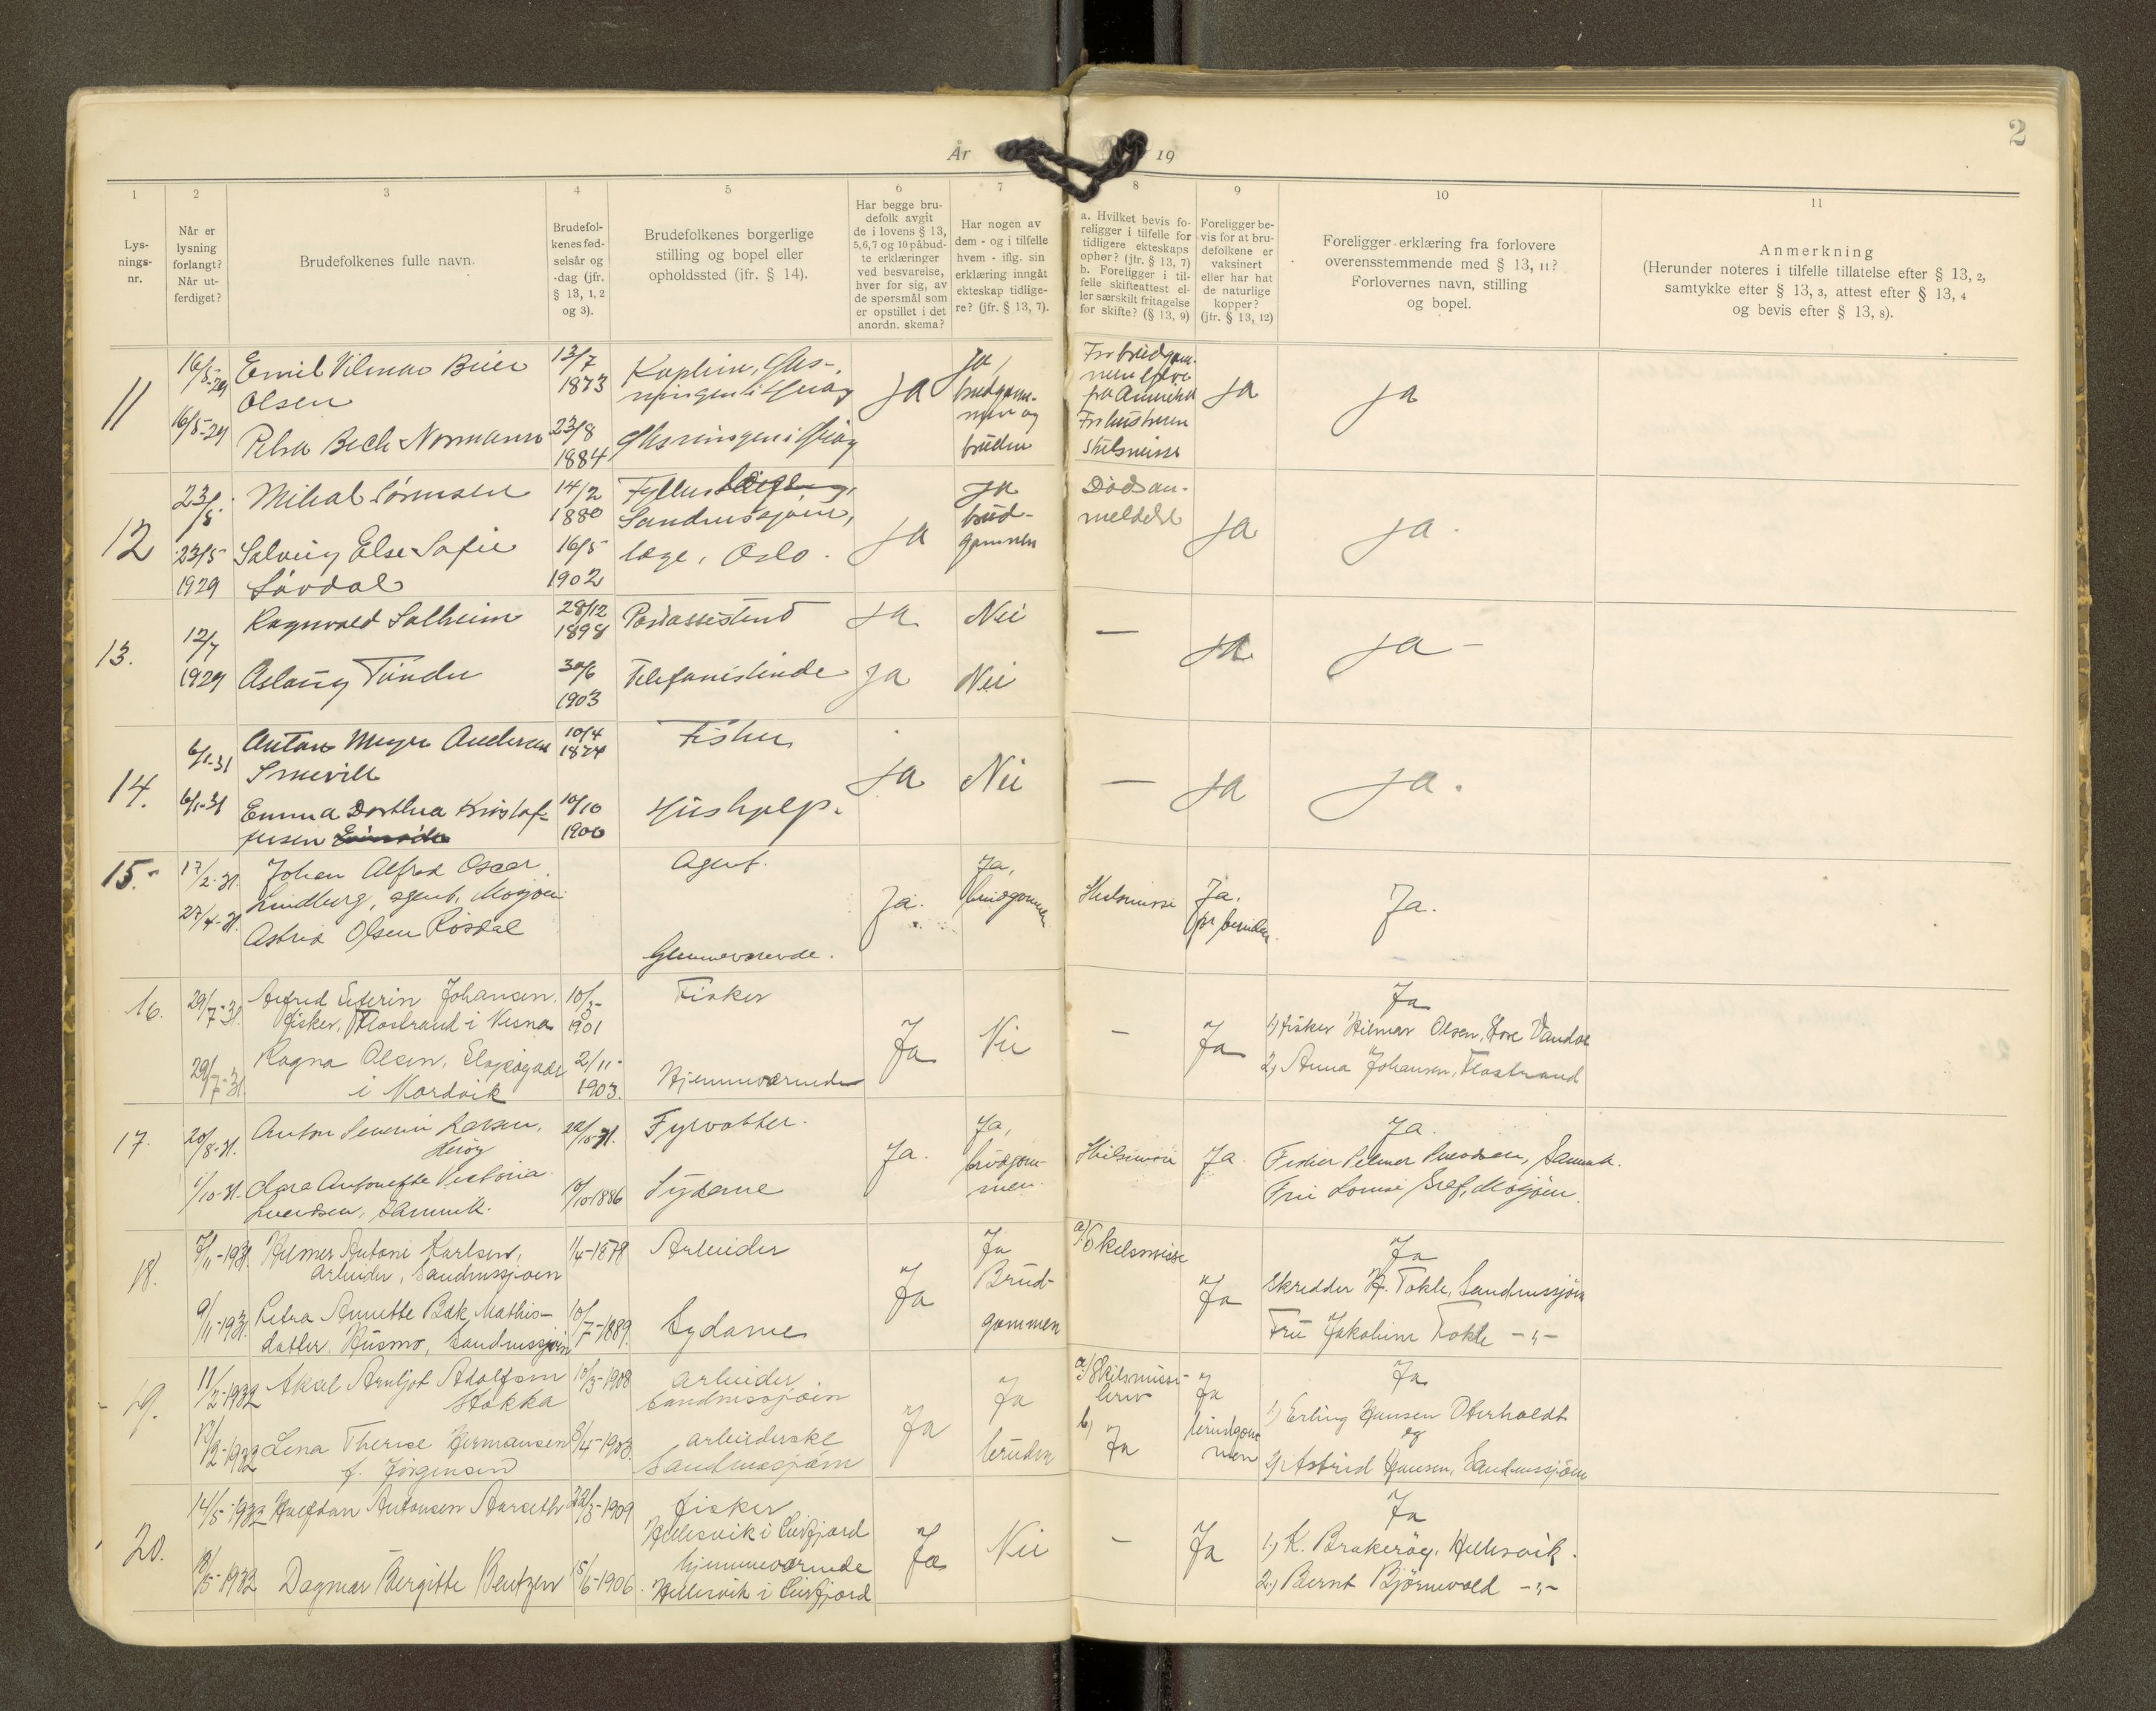 År
19
2
1
2
3
4
5
6
7
8
9
10
11
Lys-
nings-
nr.
Når er
lysning
forlangt?
Når ut-
ferdiget?
Brudefolkenes fulle navn.
Brudefol-
kenes fød-
selsår og
-dag (jfr.
§ 13, 1, 2
og 3).
Brudefolkenes borgerlige
stilling og bopel eller
opholdssted (jfr. § 14).
Har begge bru-
defolk avgit
de i lovens § 13,
5, 6, 7 og 10 påbud-
te erklæringer
ved besvarelse,
hver for sig, av
de spørsmål som
er opstillet i det
anordn. skema?
Har nogen av
dem - og i tilfelle
hvem - iflg. sin
erklæring inngåt
ekteskap tidlige-
re? (jfr. § 13, 7).
a. Hvilket bevis fo-
religger i tilfelle for
tidligere ekteskaps
ophør? (jfr. § 13, 7)
b. Foreligger i til-
felle skifteattest el-
ler særskilt fritagelse
for skifte? (§ 13, 9)
Foreligger be-
vis for at bru-
defolkene er
vaksinert
eller har hat
de naturlige
kopper?
(jfr. § 13, 12)
Foreligger erklæring fra forlovere
overensstemmende med § 13, 11?
Forlovernes navn, stilling
og bopel.
Anmerkning
(Herunder noteres i tilfelle tillatelse efter § 13, 2,
samtykke efter § 13, 3, attest efter § 13, 4
og bevis efter § 13, 8).
11
16/5-29
Emil Vilmar Beier
Olsen
13/7
1873
Ja
Ja,
brudgom-
men og
bruden
fra Amerika
Skilsmisse
Ja
Ja
16/5-29
Bech Normann
23/8
1884
12
23/5
Mikal Sørensen
14/2
1880
Sandnessjøen,
Ja
Ja
brud-
gommen
Dødsan-
meldelse
Ja
Ja
23/5
1929
Solveig Else Sofie
Løvdal
16/5
1902
læge, Oslo.
13.
12/7
1929
Ragnvald Solheim
28/12
1898
Postassistent
Ja
Nei
—
Ja
Ja -
Aslaug
30/6
1903
Telefonistinde
Ja
Nei
14.
6/1-31
Anton Meyer Andersen
10/4
1874
Fisker
Ja
Nei
—
Ja
Ja.
6/1-31
Emma Dorthea Kristof-
fersen
10/10
1900
Hushjelp.
15.
17/2-31.
Johan Alfred Oscar
Lindberg, agent, Mosjøen
Agent.
Ja.
Ja,
brudgommen
Skilsmisse
Ja.
for bruden.
Ja.
27/4-31.
Astrid Olsen Røsdal
Hjemmeværende.
16.
29/7-31.
Alfred Severin Johansen.
fisker, Flostrand i Nesna
10/3-
1901
Fisker
Ja
Nei
—
Ja
Ja
1) fisker Hilmar Olsen,
2) Anna Johansen, Flostrand
29/7-31.
Ragna Olsen,
i Nordvik
2/11-
1903.
Hjemmeværende
17.
20/8-31.
Anton Severin Larsen,
Herøy
Fyrvokter.
Ja.
Ja,
brudgom-
men.
Skilsmisse
Ja.
Ja.
Fisker
Fru Lovise Mosjøen.
1/10-31.
Clara Antonette Victoria
10/10 1886
Sydame
18.
7/11-1931.
Hilmer Antoni Karlsen,
arbeider, Sandnessjøen
1/4-1878
Arbeider
Ja
Ja
Brud-
gommen
a) Skilsmisse
Ja
Ja
Skredder H. Tokle, Sandnessjøen
Fru Jakobine Tokle -"-
9/11-1931.
Petra Annette Bak Mathis-
datter Husmo, Sandnessjøen
10/7-1889.
Sydame
19.
11/2-1932
Aksel Arnljot Adolfsen
Stokka
10/3-1908
arbeider
Sandnessjøen
Ja
Ja
bruden
a) Skilsmisse-
brev
b) Ja
Ja
brudgom-
men
Ja
1) Erling Hansen Oterholdt
og
2) Astrid Hansen, Sandnessjøen
12/2-1932
Lena Therese Hermansen
f. Jørgensen
8/4-1903.
arbeiderske
Sandnessjøen
20.
14/5-1932
Halfdan Antonsen Aarseth
22/3-1909
fisker
Hellesvik i Leirfjord
Ja
Nei
—
Ja
Ja
1.) K. Brakerøy, Hellesvik.
2.) Bernt Bjørnvold -"-
18/5-1932
Dagmar Bergitte Bentzen
15/6-1906.
hjemmeværende
Hellesvik i Leirfjord